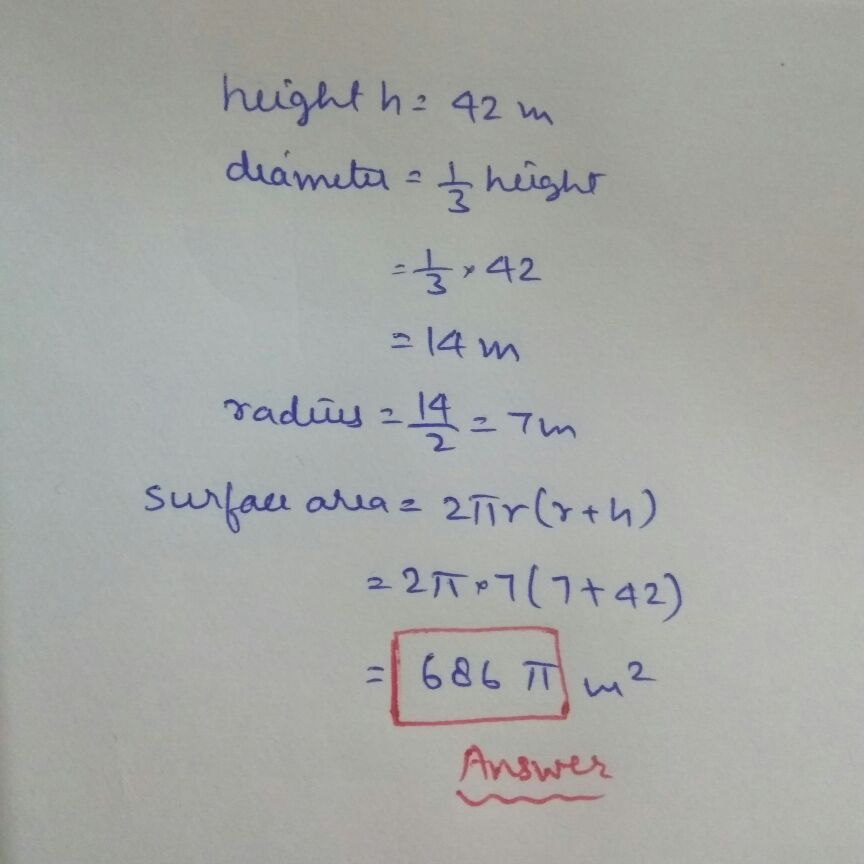 height h = 42 m
diameter = 1/3 height
= 1/3 × 42
= 14 m
radius = 14/2 = 7m
surface area = 2πr(r+h)
= 2π × 7(7+42)
= 686 π m²
Answer